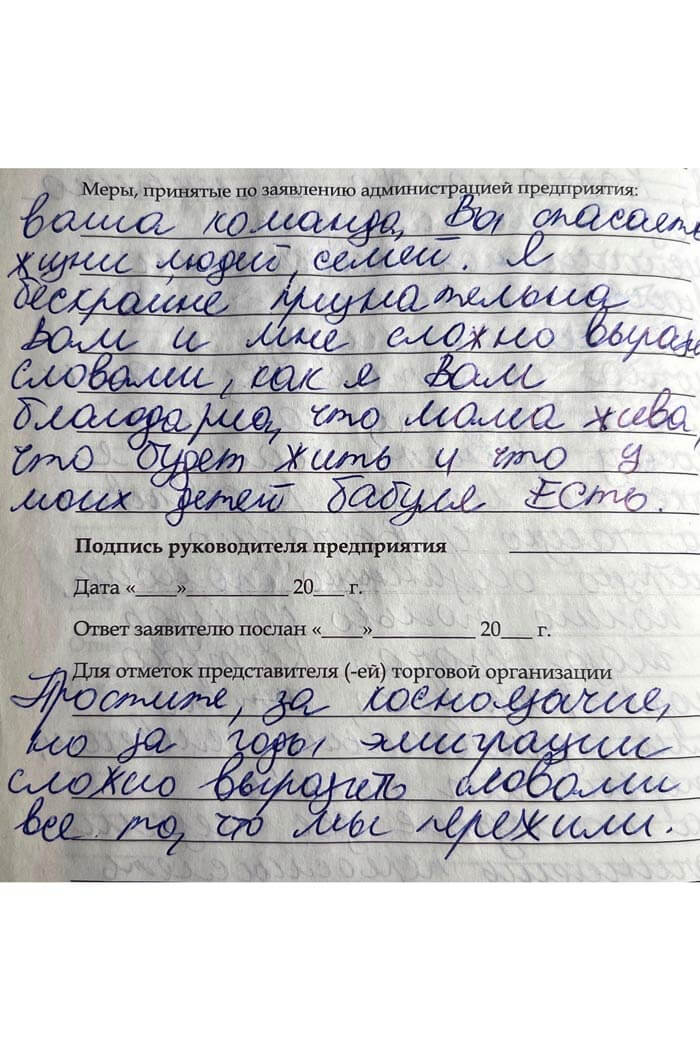 Меры, принятые по заявлению администрацией предприятия:
ваша команда, Вы спасаете
жизни людей, семей. Я
бескрайне признательна
Вам и мне сложно
словами, как я Вам
благодарна, что мама жива,
что будет жить и что у
моих детей бабуля ЕСТЬ.
Подпись руководителя предприятия
Дата «____»__________ 20___ г.
Ответ заявителю послан «____»__________ 20___ г.
Для отметок представителя (-ей) торговой организации
Простите, за косноязычие,
но за годы эмиграции
сложно выразить словами
все то, что мы пережили.